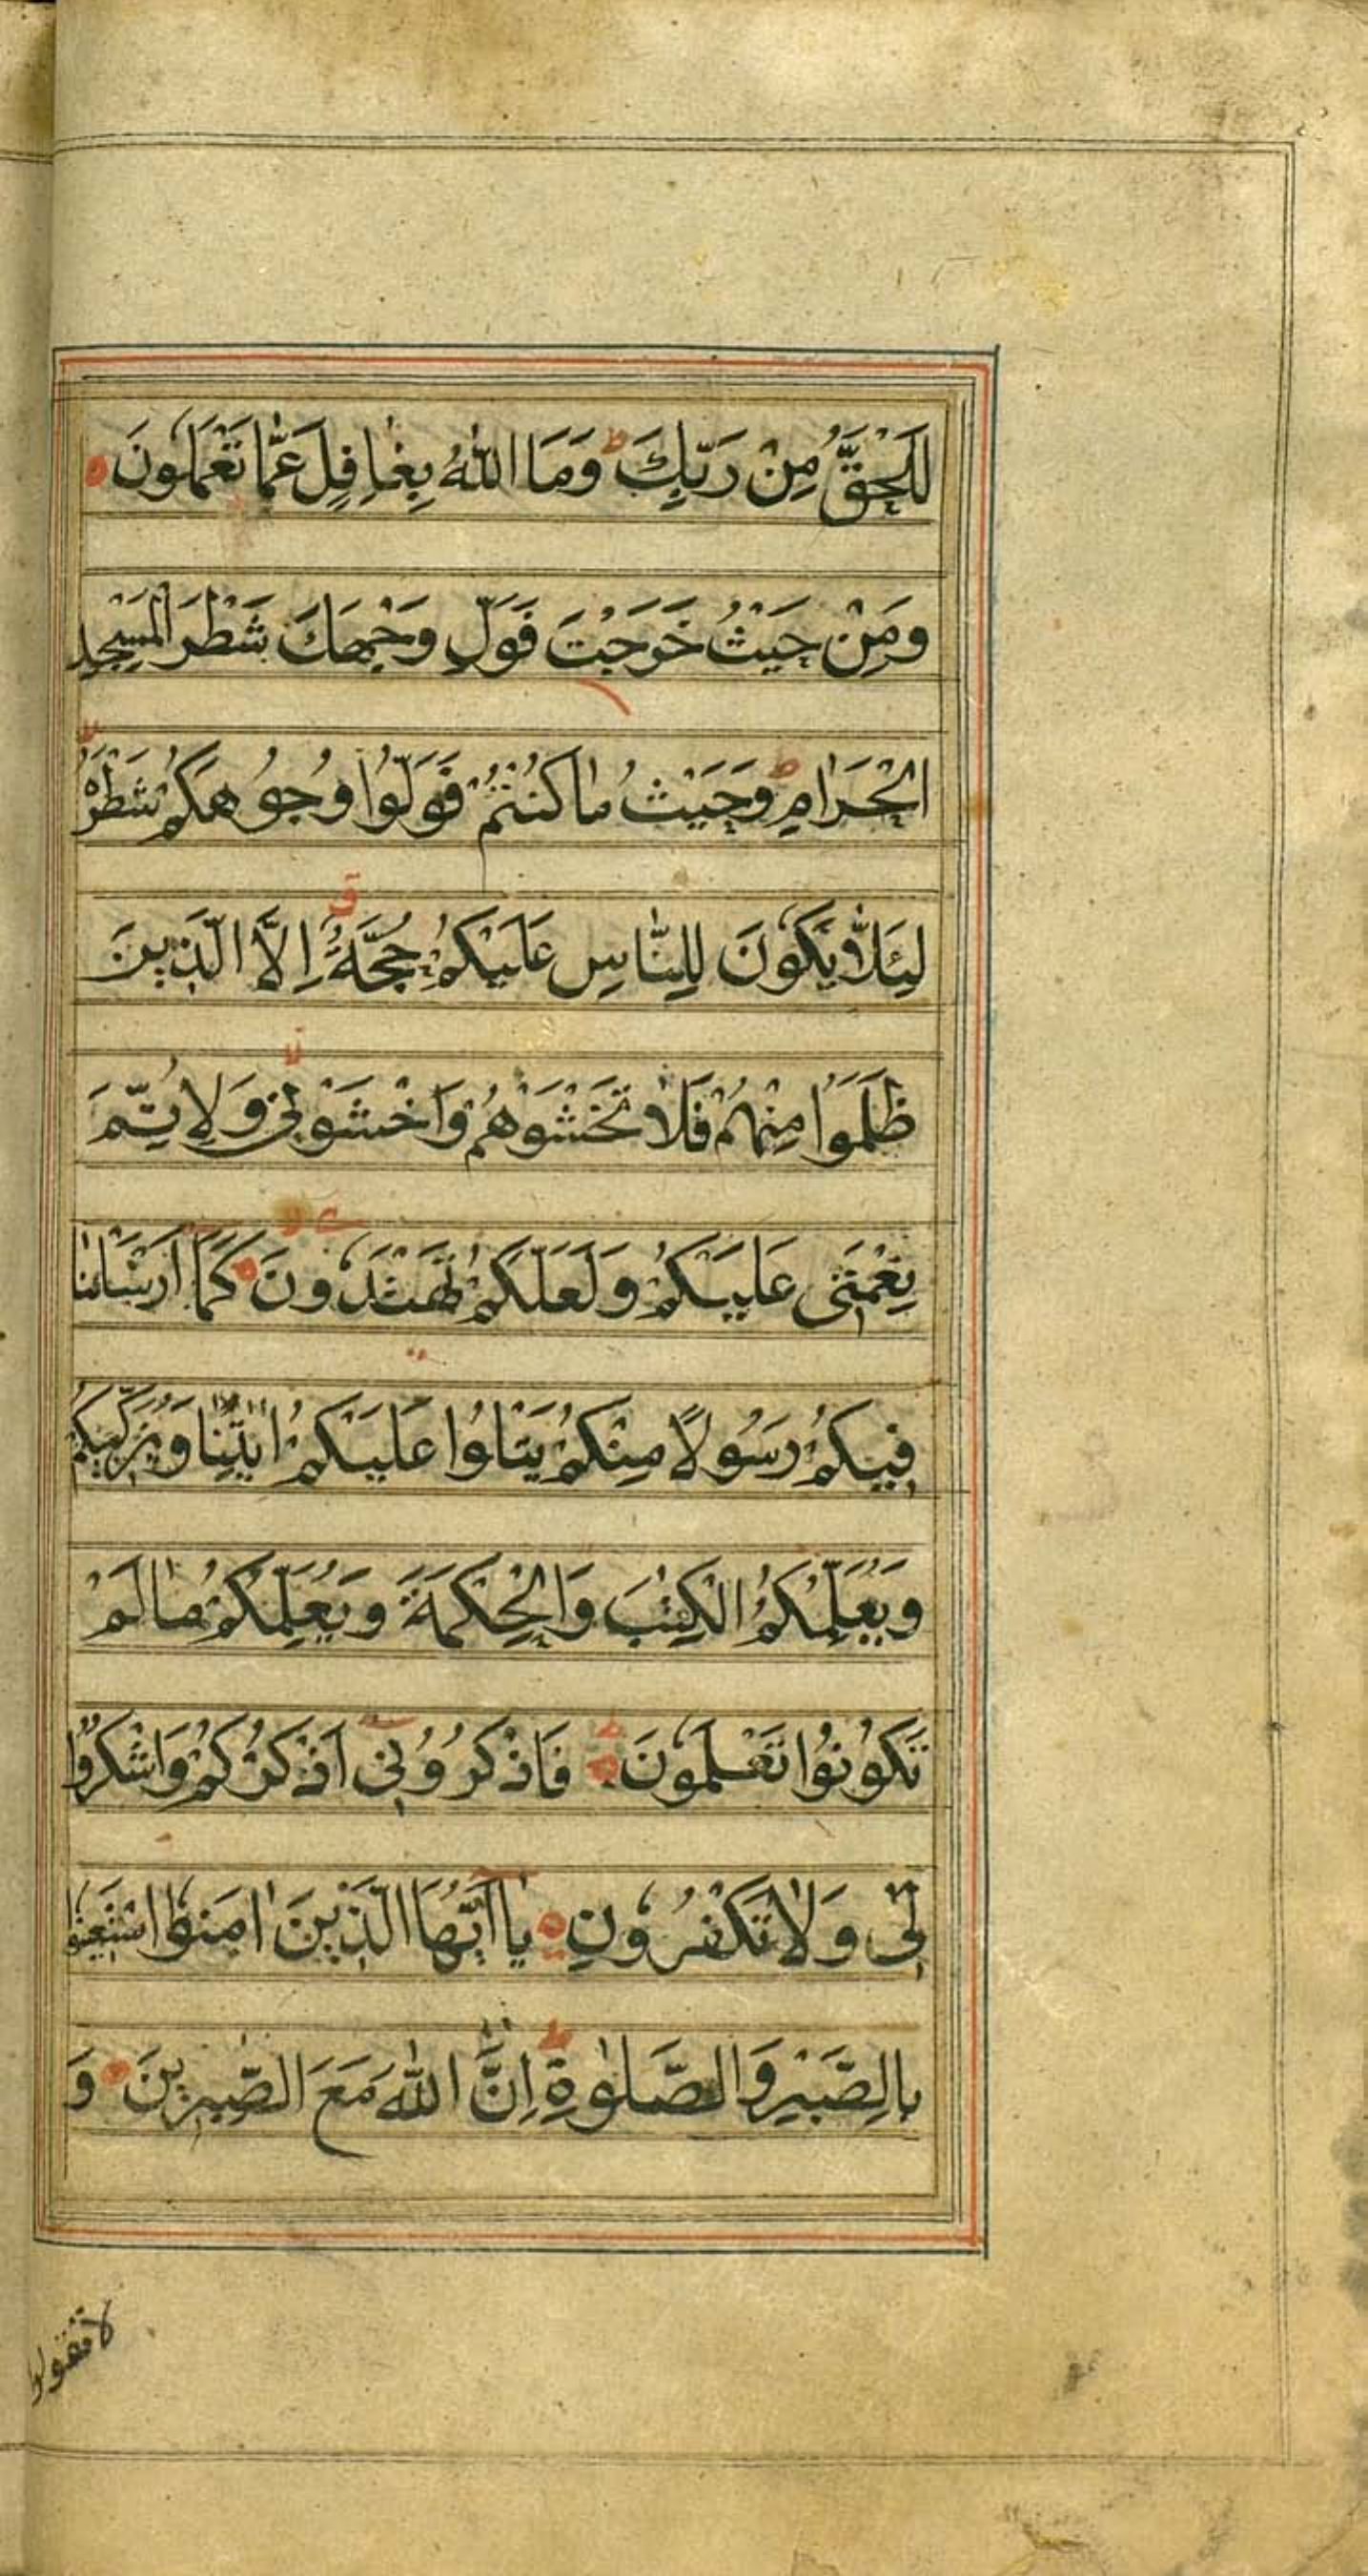 لَلْحَقُّ مِنْ رَبِّكَ ط وَمَا اللّٰهُ بِغَافِلٍ عَمَّا تَعْمَلُونَ
وَمِنْ حَيْثُ خَرَجْتَ فَوَلِّ وَجْهَكَ شَطْرَ الْمَسْجِدِ
الْحَرَامِ ط وَحَيْثُ مَا كُنْتُمْ فَوَلُّوْا وُجُوهَكُمْ شَطْرَهُ لا
لِئَلَّا يَكُونَ لِلنَّاسِ عَلَيْكُمْ حُجَّةٌ ق اِلَّا الَّذِينَ
ظَلَمُوا مِنْهُمْ فَلَا تَخْشَوْهُمْ وَاخْشَوْنِي لا وَلِاُتِمَّ
نِعْمَتِي عَلَيْكُمْ وَلَعَلَّكُمْ تَهْتَدُونَ كَمَا اَرْسَلْنَا
فِيكُمْ رَسُولًا مِنْكُمْ يَتْلُوا عَلَيْكُمْ اٰيٰتِنَا وَيُزَكِّيكُمْ
وَيُعَلِّمُكُمُ الْكِتٰبَ وَالْحِكْمَةَ وَيُعَلِّمُكُمْ مَا لَمْ
تَكُونُوا تَعْلَمُونَ ط فَاذْكُرُونِي اَذْكُرْكُمْ وَاشْكُرُوا
لِي وَلَا تَكْفُرُونِ يَا اَيُّهَا الَّذِينَ اٰمَنُوا اسْتَعِينُوا
بِالصَّبْرِ وَالصَّلٰوةِ ط اِنَّ اللّٰهَ مَعَ الصّٰبِرِينَ وَ
لا تقولوا